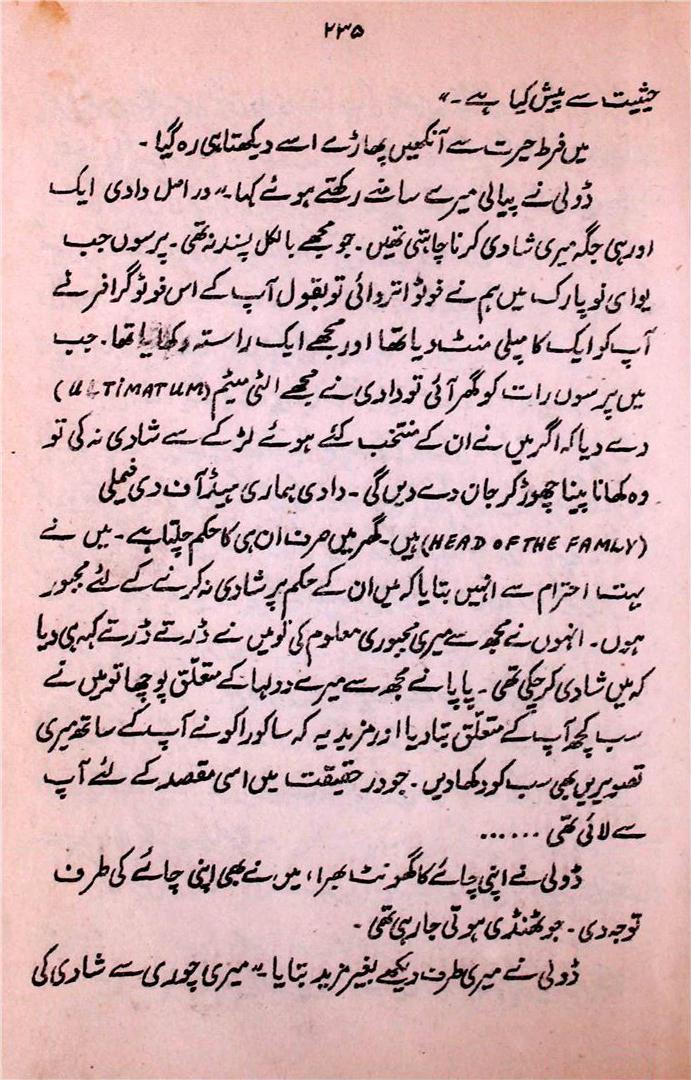 ۲۳۵
حیثیت سے پیش کیا ہے۔"
میں فرط حیرت سے آنکھیں پھاڑے اسے دیکھتا ہی رہ گیا۔
ڈولی نے پیالی میرے سامنے رکھتے ہوئے کہا۔ "در اصل دادی ایک
اور ہی جگہ میری شادی کرنا چاہتی تھیں۔ جو مجھے بالکل پسند نہ تھی۔ پرسوں جب
یوای نو پارک میں ہم نے فوٹو اتروائی تو بقول آپ کے اس فوٹو گرافر نے
آپ کو ایک کامپلی منٹ دیا تھا اور مجھے ایک راستہ دکھایا تھا۔ جب
میں پرسوں رات کو گھر آئی تو دادی نے مجھے الٹی میٹم (ULTIMATUM)
دے دیا کہ اگر میں نے ان کے منتخب کئے ہوئے لڑکے سے شادی نہ کی تو
وہ کھانا پینا چھوڑ کر جان دے دیں گی۔ دادی ہماری ہیڈ آف دی فیملی
(HEAD OF THE FAMLY) ہیں۔ گھر میں صرف ان ہی کا حکم چلتا ہے۔ میں نے
بہت احترام سے انہیں بتایا کہ میں ان کے حکم پر شادی نہ کرنے کے لئے مجبور
ہوں۔ انہوں نے مجھ سے میری مجبوری معلوم کی تو میں نے ڈرتے ڈرتے کہہ ہی دیا
کہ میں شادی کر چکی تھی۔ پاپا نے مجھ سے میرے دولہا کے متعلق پوچھا تو میں نے
سب کچھ آپ کے متعلق بتا دیا اور مزید یہ کہ ساکورا کو نے آپ کے ساتھ میری
تصویریں بھی سب کو دکھا دیں۔ جو در حقیقت میں اسی مقصد کے لئے آپ
سے لائی تھی ......
ڈولی نے اپنی چائے کا گھونٹ بھرا، میں نے بھی اپنی چائے کی طرف
توجہ دی۔ جو ٹھنڈی ہوتی جا رہی تھی۔
ڈولی نے میری طرف دیکھے بغیر مزید بتایا۔ "میری چوری سے شادی کی